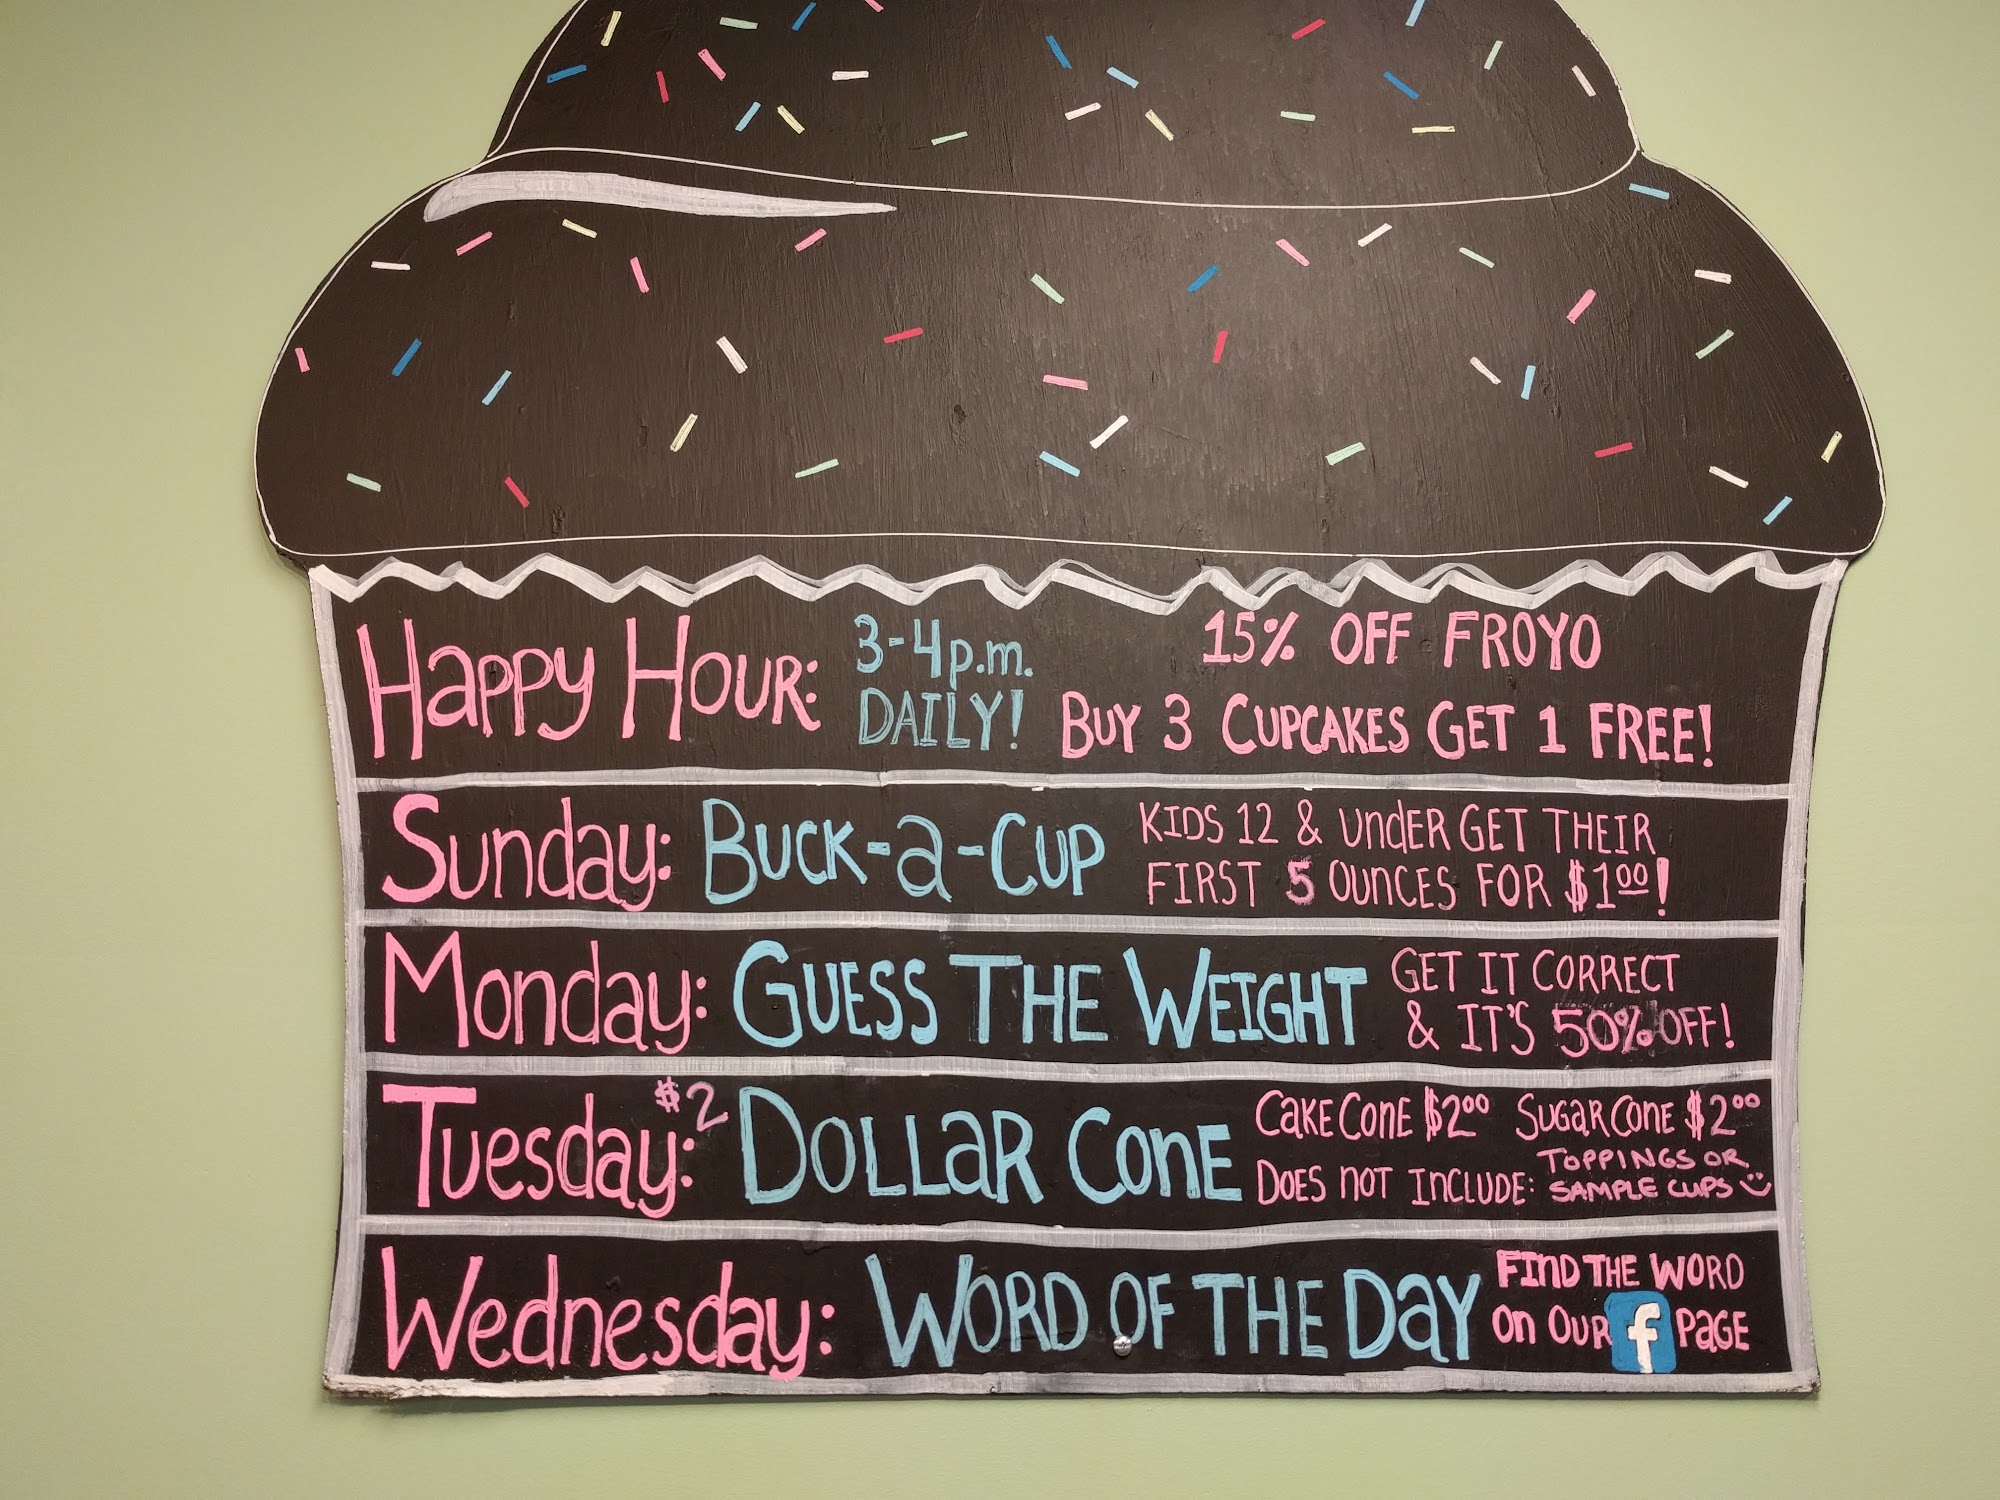 Happy Hour: 3-4p.m. DAILY!
15% OFF FROYO
BUY 3 CUPCAKES GET 1 FREE!
Sunday: BUCK-a-CUP
KIDS 12 & UndER GET THEIR
FIRST 5 OUnCES FOR $1.00!
Monday: GUESS THE WEIGHT
GET IT CORRECT
& IT'S 50% OFF!
Tuesday: $2 DOLLaR ConE
CaKE ConE $2.00 SUGaR ConE $2.00
DOES nOT InCLUDE: TOPPINGS OR
SAMPLE CUPS
Wednesday: WORD OF THE Day
FInD THE WORD
On OUR f PaGE